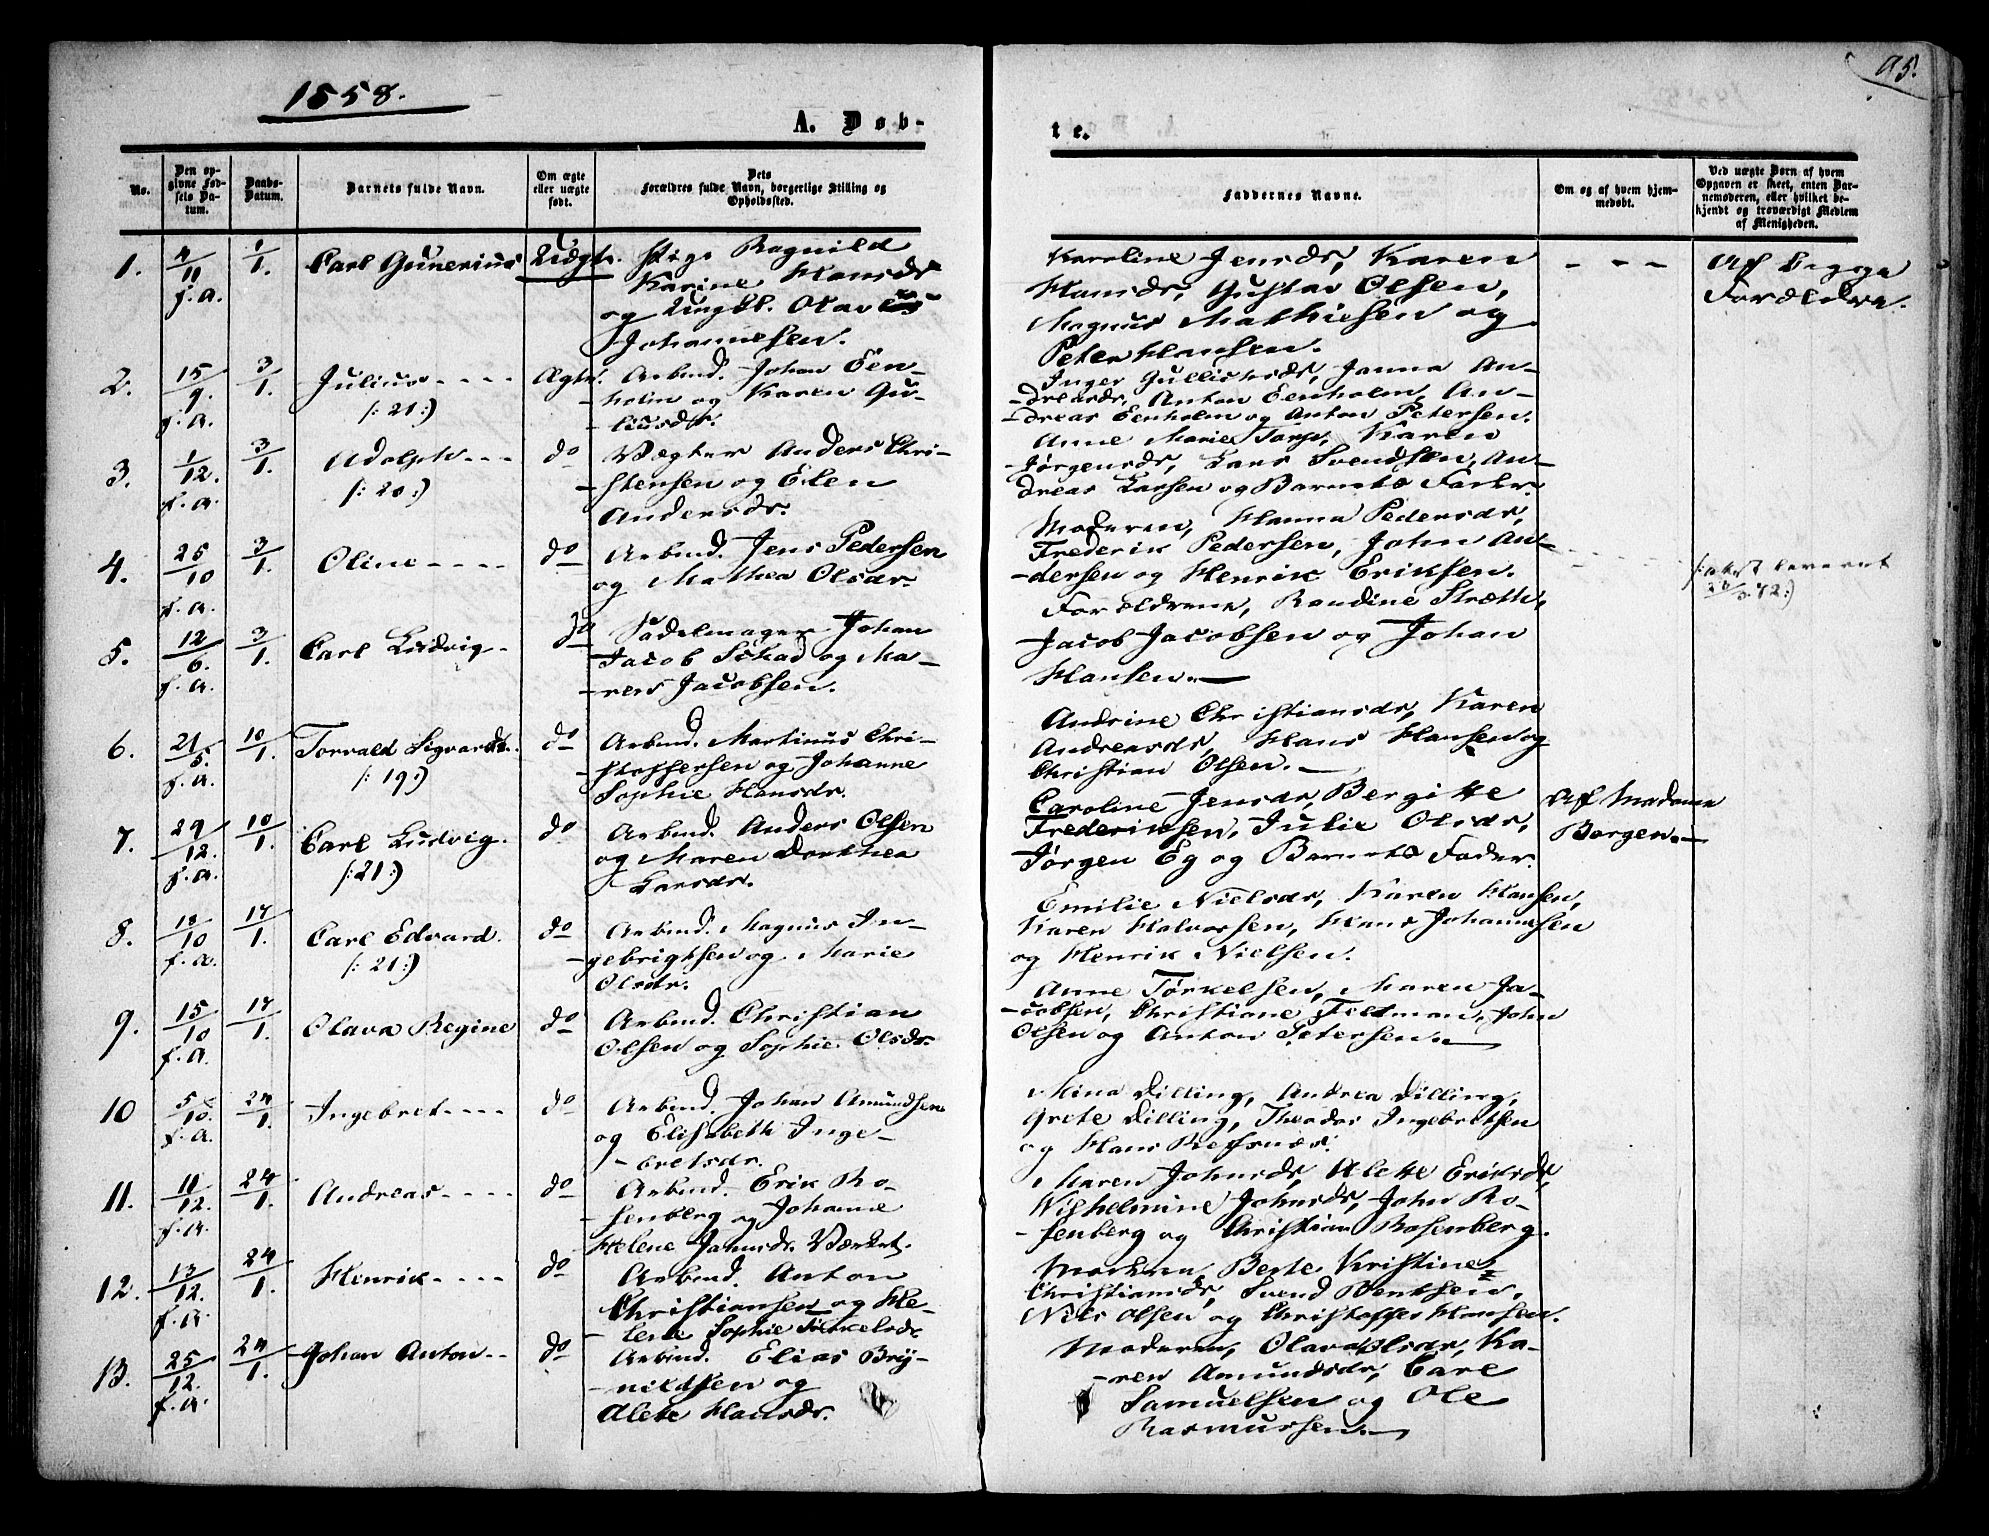 1858.
95.
A. Døb-
te.
No.
Den op-
givne Fød-
sels Da-
tum.
Daabs-
Datum.
Barnets fulde Navn.
Om ægte
eller uægte
født.
Dets
Forældres fulde Navn, borgerlige Stilling og
Opholdssted.
Faddernes Navne.
Om og af hvem hjem-
medøbt.
Ved uægte Børn af hvem
Opgaven er skeet, enten Bar-
nemoderen, eller hvilket be-
kjendt og troværdigt Medlem
af Menigheden.
1. 4/11 f.a. 1/1. Carl Gunerius Uægte. Pige Ragnild
Karine Hansdr
og Ungk. Olaves
Johannesen.
Karoline Jensdr, Karen
Hansdr, Gustav Olsen,
Magnus Mathiesen og
Peter Hansen.
- - -
Af begge
Forældre.
2. 15/9. f.a. 3/1. Julius ---- Ægte. Arbmd. Johan Een-
(:21:)
holm og Karen Gu-
liusdr.
Inger Gullichsdr, Janna An-
dreasdr, Anton Eenholm, An-
dreas Eenholm og Anton Petersen.
3. 1/12. f.a. 3/1. Adolph --- do Vægter Anders Chri-
(:20:)
stensen og Elen
Andersdr.
Anne Marie Torp, Karen
Jørgensdr, Lars Svendsen, An-
dreas Larsen og Barnets Fader.
4. 25/10 f.a. 3/1. Oline ---- do Arbmd. Jens Pedersen
og Mathea Olsdr.
Moderen, Hanna Pedersdr,
Frederik Pedersen, John An-
dersen og Henrik Eriksen.
(:attest leveret
72:)
5. 12/6. f.a. 3/1. Carl Ludvig - do Sadelmager Johan
Jacob Schad og Ma-
ren Jacobsen.
Forældrene, Randine Stræthe,
Jacob Jacobsen og Johan
Hansen. —
6. 21/5. f.a. 10/1. Torvald Sigvardt. do Arbmd. Martinus Chri-
(:19:)
stoffersen og Johanne
Sophie Hansdr.
Andrine Christiansdr, Karen
Andreasdr, Hans Hansen og
Christian Olsen. —
7. 29/12. f.a. 10/1. Carl Ludvig. do Arbmd. Anders Olsen
(:21:)
og Maren Dorthea
Larsdr.
Caroline Jensdr, Bergitte
Frederiksen, Julie Olsdr,
Jørgen Eg og Barnets Fader.
Af Madame
Borgen. —
8. 18/10 f.a. 17/1. Carl Edvard. do Arbmd. Magnus In-
(:21:)
gebrigtsen og Marie
Olsdr.
Emilie Nielsdr, Karen Hansen,
Karen Halvorsen, Hans Johannesen
og Henrik Nielsen.
9. 15/10 f.a. 17/1. Olava Regine do Arbmd. Christian
Olsen og Sophie Olsdr.
Anne Tørkelsen, Maren Ja-
cobsen, Christiane Feltman, John
Olsen og Anton Petersen. —
10 5/10. f.a. 24/1. Ingebret ---- do Arbmd. Johan Amundsen
og Elisabeth Inge-
bretsdr.
Mina Dilling, Andrea Dilling,
Grete Dilling, Theodor Ingebretsen
og Hans Refsnæs.
11. 11/12. f.a. 24/1. Andreas ---- do Arbmd. Erik Ro-
senberg og Johanne
Helene Johnsdr. Værket.
Maren Johnsdr, Alette Eriksdr,
Wilhelmine Johnsdr, John Ro-
senberg og Christian Rosenberg.
12. 13/12. f.a. 24/1. Henrik ---- do Arbmd. Anton
Christiansen og He-
lene Sophie Tørkelsdr
Moderen, Berte Kristine
Christiansdr, Svend Bentsen,
Nils Olsen og Christoffer Hansen.
13. 25/12. f.a. 24/1. Johan Anton -- do Arbmd. Elias Bry-
nildsen og
Alette Hansdr.
Moderen, Olava Olsdr, Ka-
ren Amundsdr, Carl
Samuelsen og Ole
Rasmussen. —